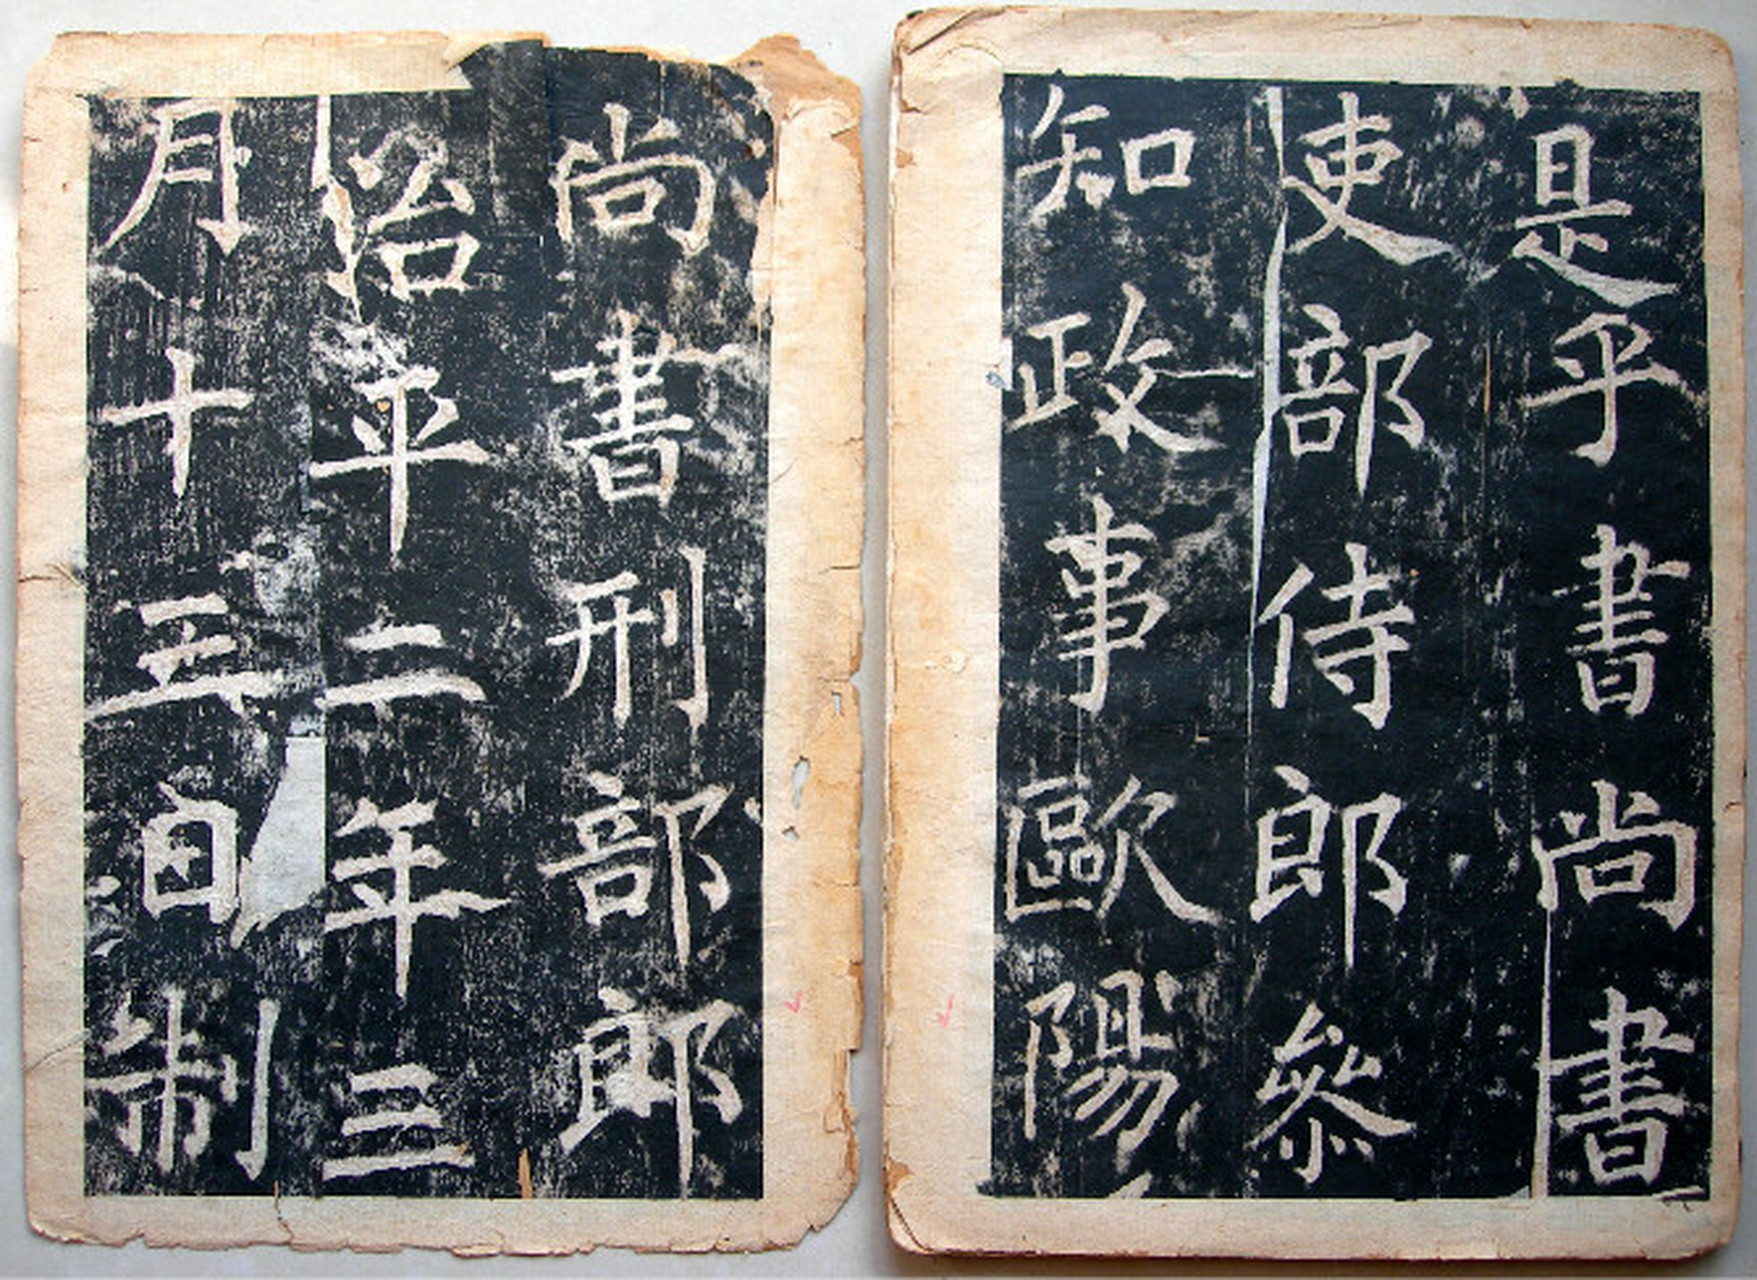 是乎書尚書
吏部侍郎叅
知政事歐陽
尚書刑部郎
治平二年三
月十三日制